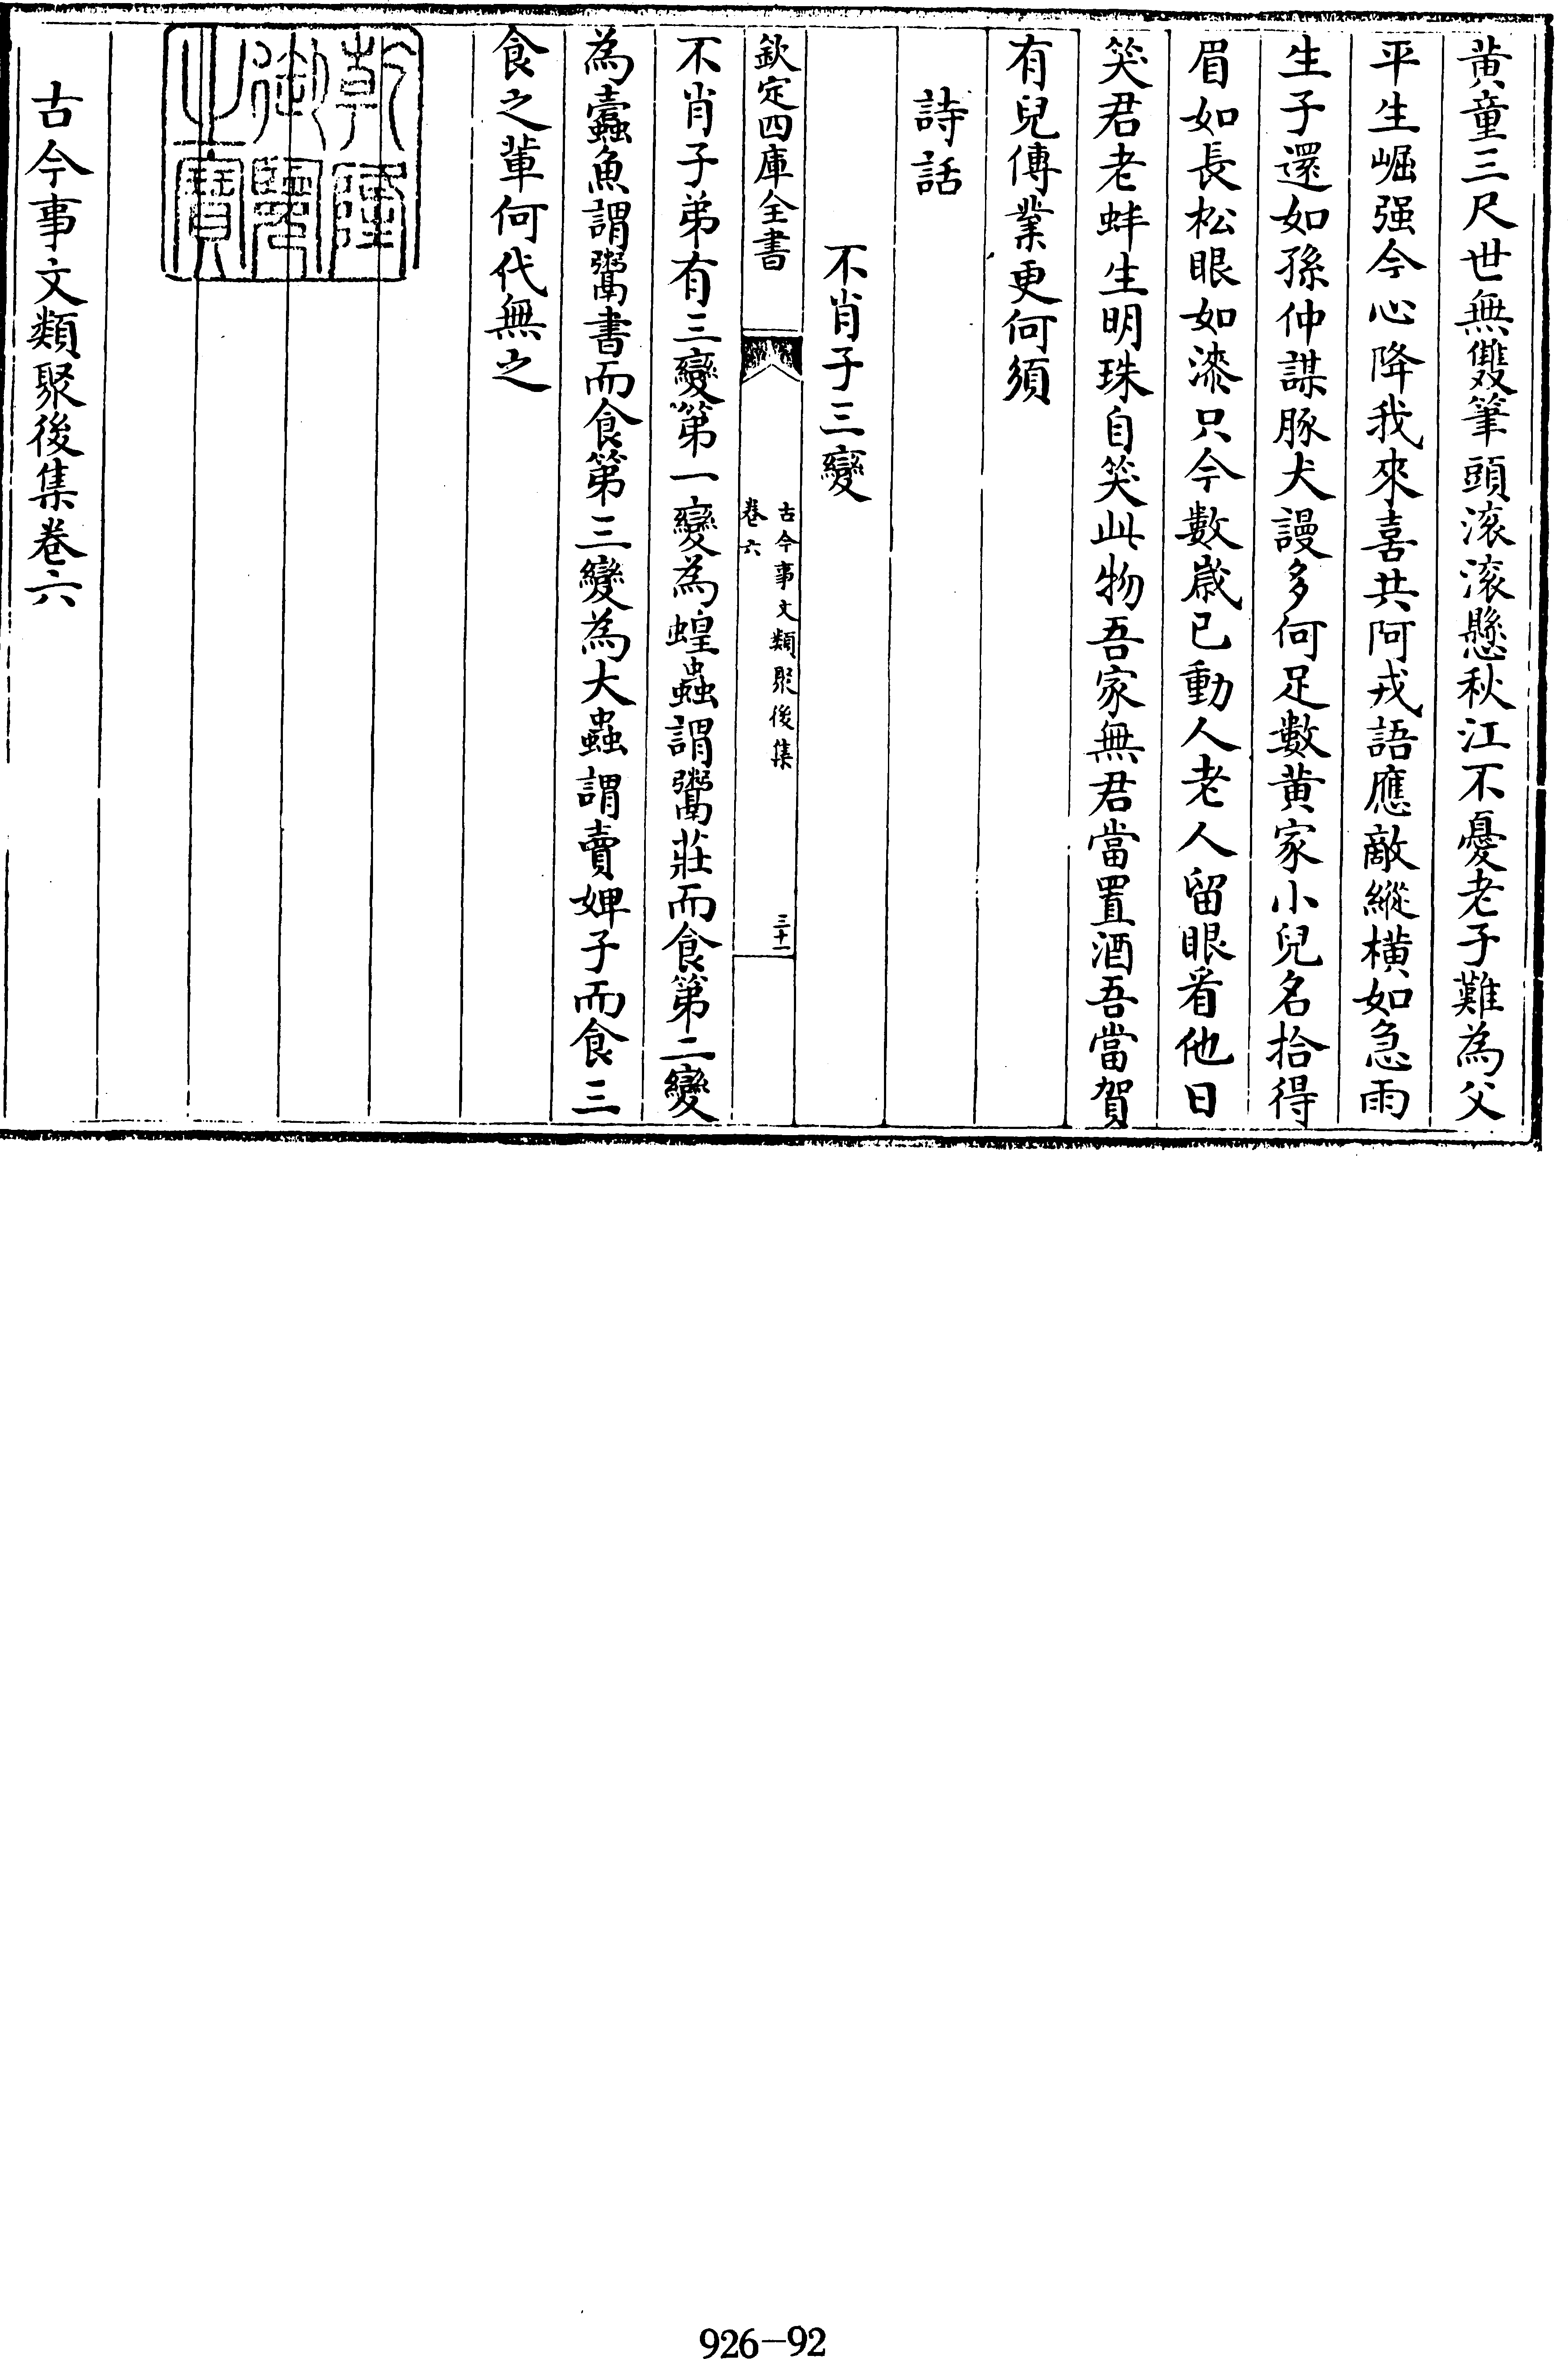 黄童三尺世無雙筆頭滚滚懸秋江不憂老子難為父
平生崛强今心降我來喜共阿戎語應敵縱橫如急雨
生子還如孫仲謀豚犬謾多何足數黄家小兒名拾得
眉如長松眼如漆只今數嵗已動人老人留眼看他日
笑君老蚌生明珠自笑此物吾家無君當置酒吾當賀
有兒傳業更何須
詩話
不肖子三變
欽定四庫全書
古今事文類聚後集
卷六
三十一
不肖子弟有三變第一變為蝗蟲謂鬻莊而食第二變
為蠧魚謂鬻書而食第三變為大蟲謂賣婢子而食三
食之輩何代無之
乾隆
御覽
之寶
古今事文類聚後集卷六
926-92